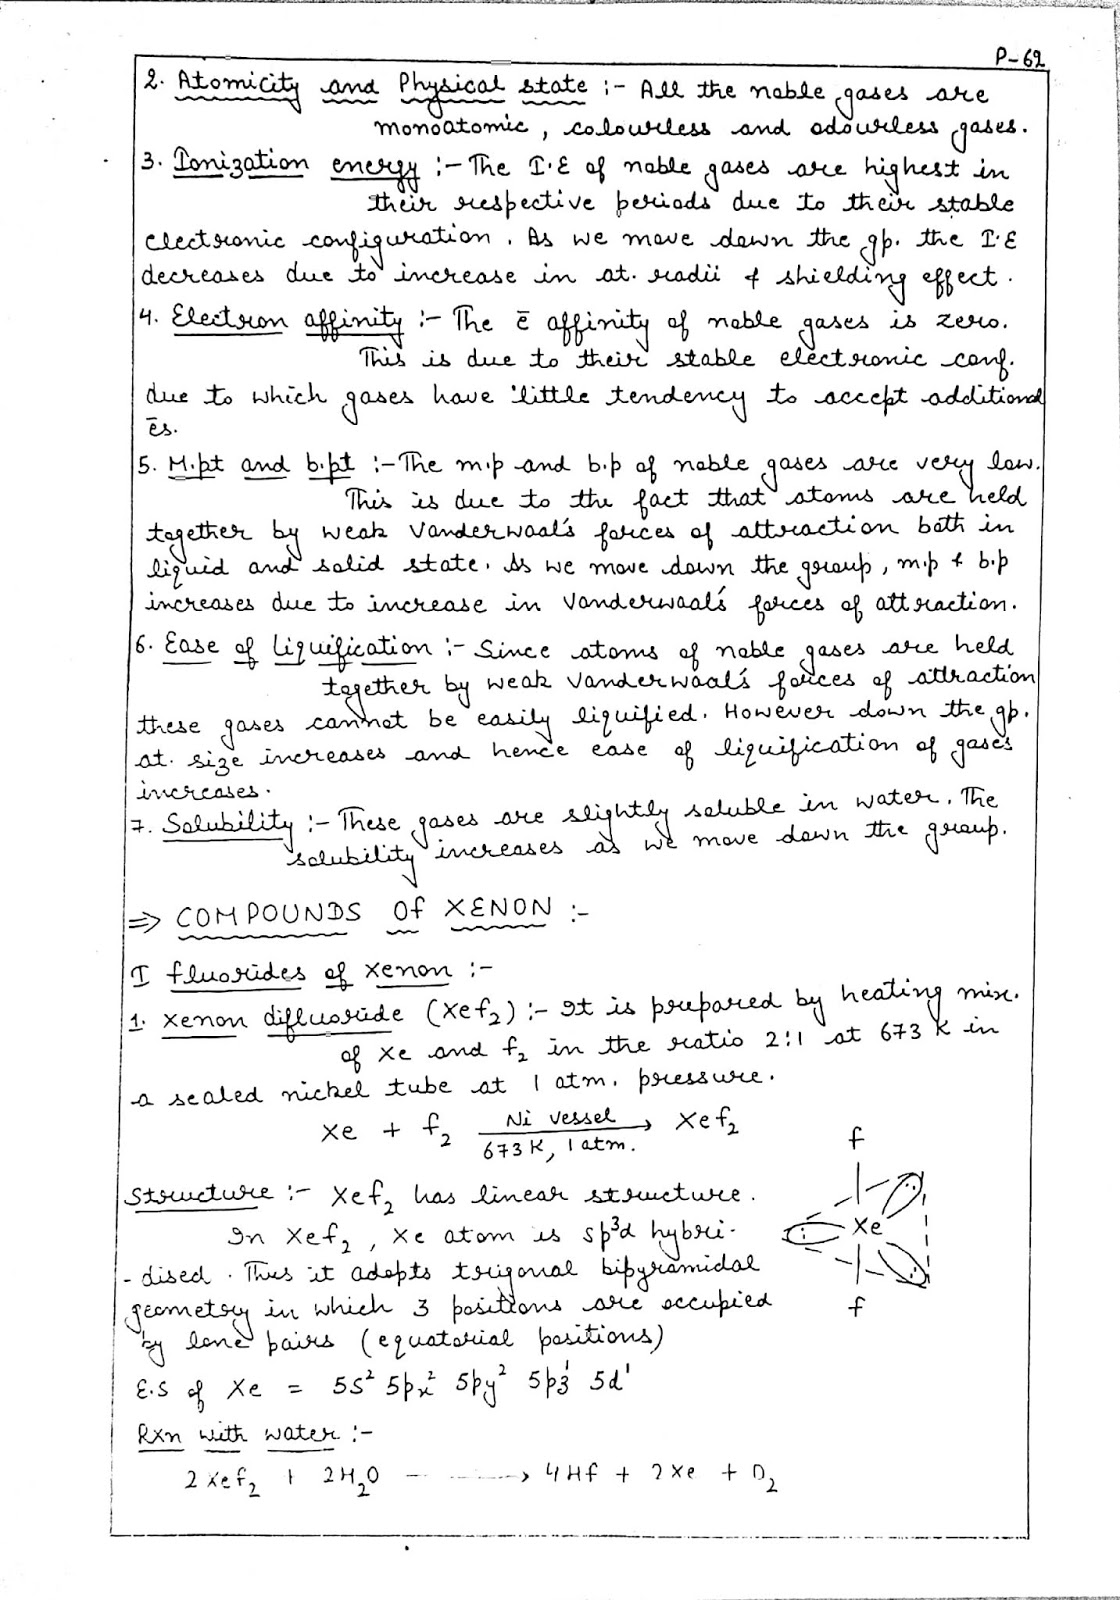 P-62
2. Atomicity and Physical state :- All the noble gases are
monoatomic, colourless and odourless gases.
3. Ionization energy :- The I.E of noble gases are highest in
their respective periods due to their stable
electronic configuration. As we move down the gp. the I.E
decreases due to increase in at. radii & shielding effect.
4. Electron affinity :- The ē affinity of noble gases is zero.
This is due to their stable electronic conf.
due to which gases have little tendency to accept additional
ēs.
5. M.pt and b.pt :- The m.p and b.p of noble gases are very low.
This is due to the fact that atoms are held
together by weak Vanderwaal's forces of attraction both in
liquid and solid state. As we move down the group, m.p & b.p
increases due to increase in Vanderwaal's forces of attraction.
6. Ease of Liquification :- Since atoms of noble gases are held
together by weak Vanderwaal's forces of attraction
these gases cannot be easily liquified. However down the gp.
at. size increases and hence ease of liquification of gases
increases.
7. Solubility :- These gases are slightly soluble in water. The
solubility increases as we move down the group.
⇒ COMPOUNDS Of XENON :-
I fluorides of xenon :-
1. xenon difluoride (Xef₂) :- It is prepared by heating mix.
of Xe and f₂ in the ratio 2:1 at 673 K in
a sealed nickel tube at 1 atm. pressure.
Xe + f₂ Ni vessel → Xef₂
673 K, 1 atm.
f
Structure :- Xef₂ has linear structure.
In Xef₂, Xe atom is sp³d hybri-
Xe
- dised. Thus it adopts trigonal bipyramidal
geometry in which 3 positions are occupied
f
by lone pairs (equatorial positions)
E.S of Xe = 5s² 5px² 5py² 5pz¹ 5d¹
Rxn with water :-
2 Xef₂ + 2H₂O → 4Hf + 2Xe + O₂